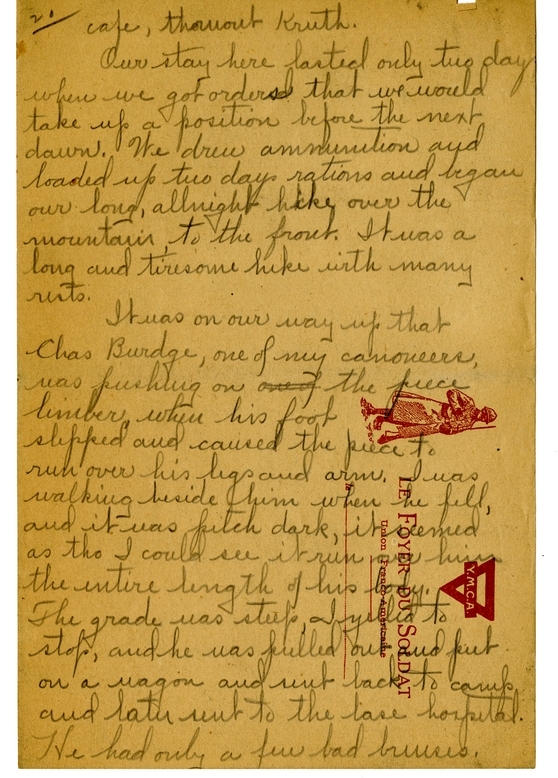 20
cafe, thruout Kruth.
Our stay here lasted only two day
when we got orders that we would
take up a position before the next
dawn. We drew ammunition and
loaded up two days rations and began
our long, allnight hike over the
mountain, to the front. It was a
long and tiresome hike with many
rests.
It was on our way up that
Chas Burdge, one of my canoneers,
was pushing on one of the piece
limber, when his foot
slipped and caused the piece to
run over his legs and arm. I was
walking beside him when he fell,
and it was pitch dark, it seemed
as tho I could see it run over him
the entire length of his body.
The grade was steep, I yelled to
stop, and he was pulled out and put
on a wagon and sent back to camp
and later sent to the base hospital.
He had only a few bad bruises.
le
LE FOYER DU SOLDAT
Union Franco-Américaine
Y.M.C.A.